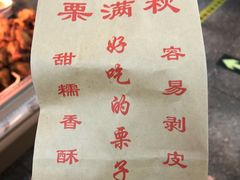 栗满秋
好吃的栗子
甜糯香酥
容易剥皮